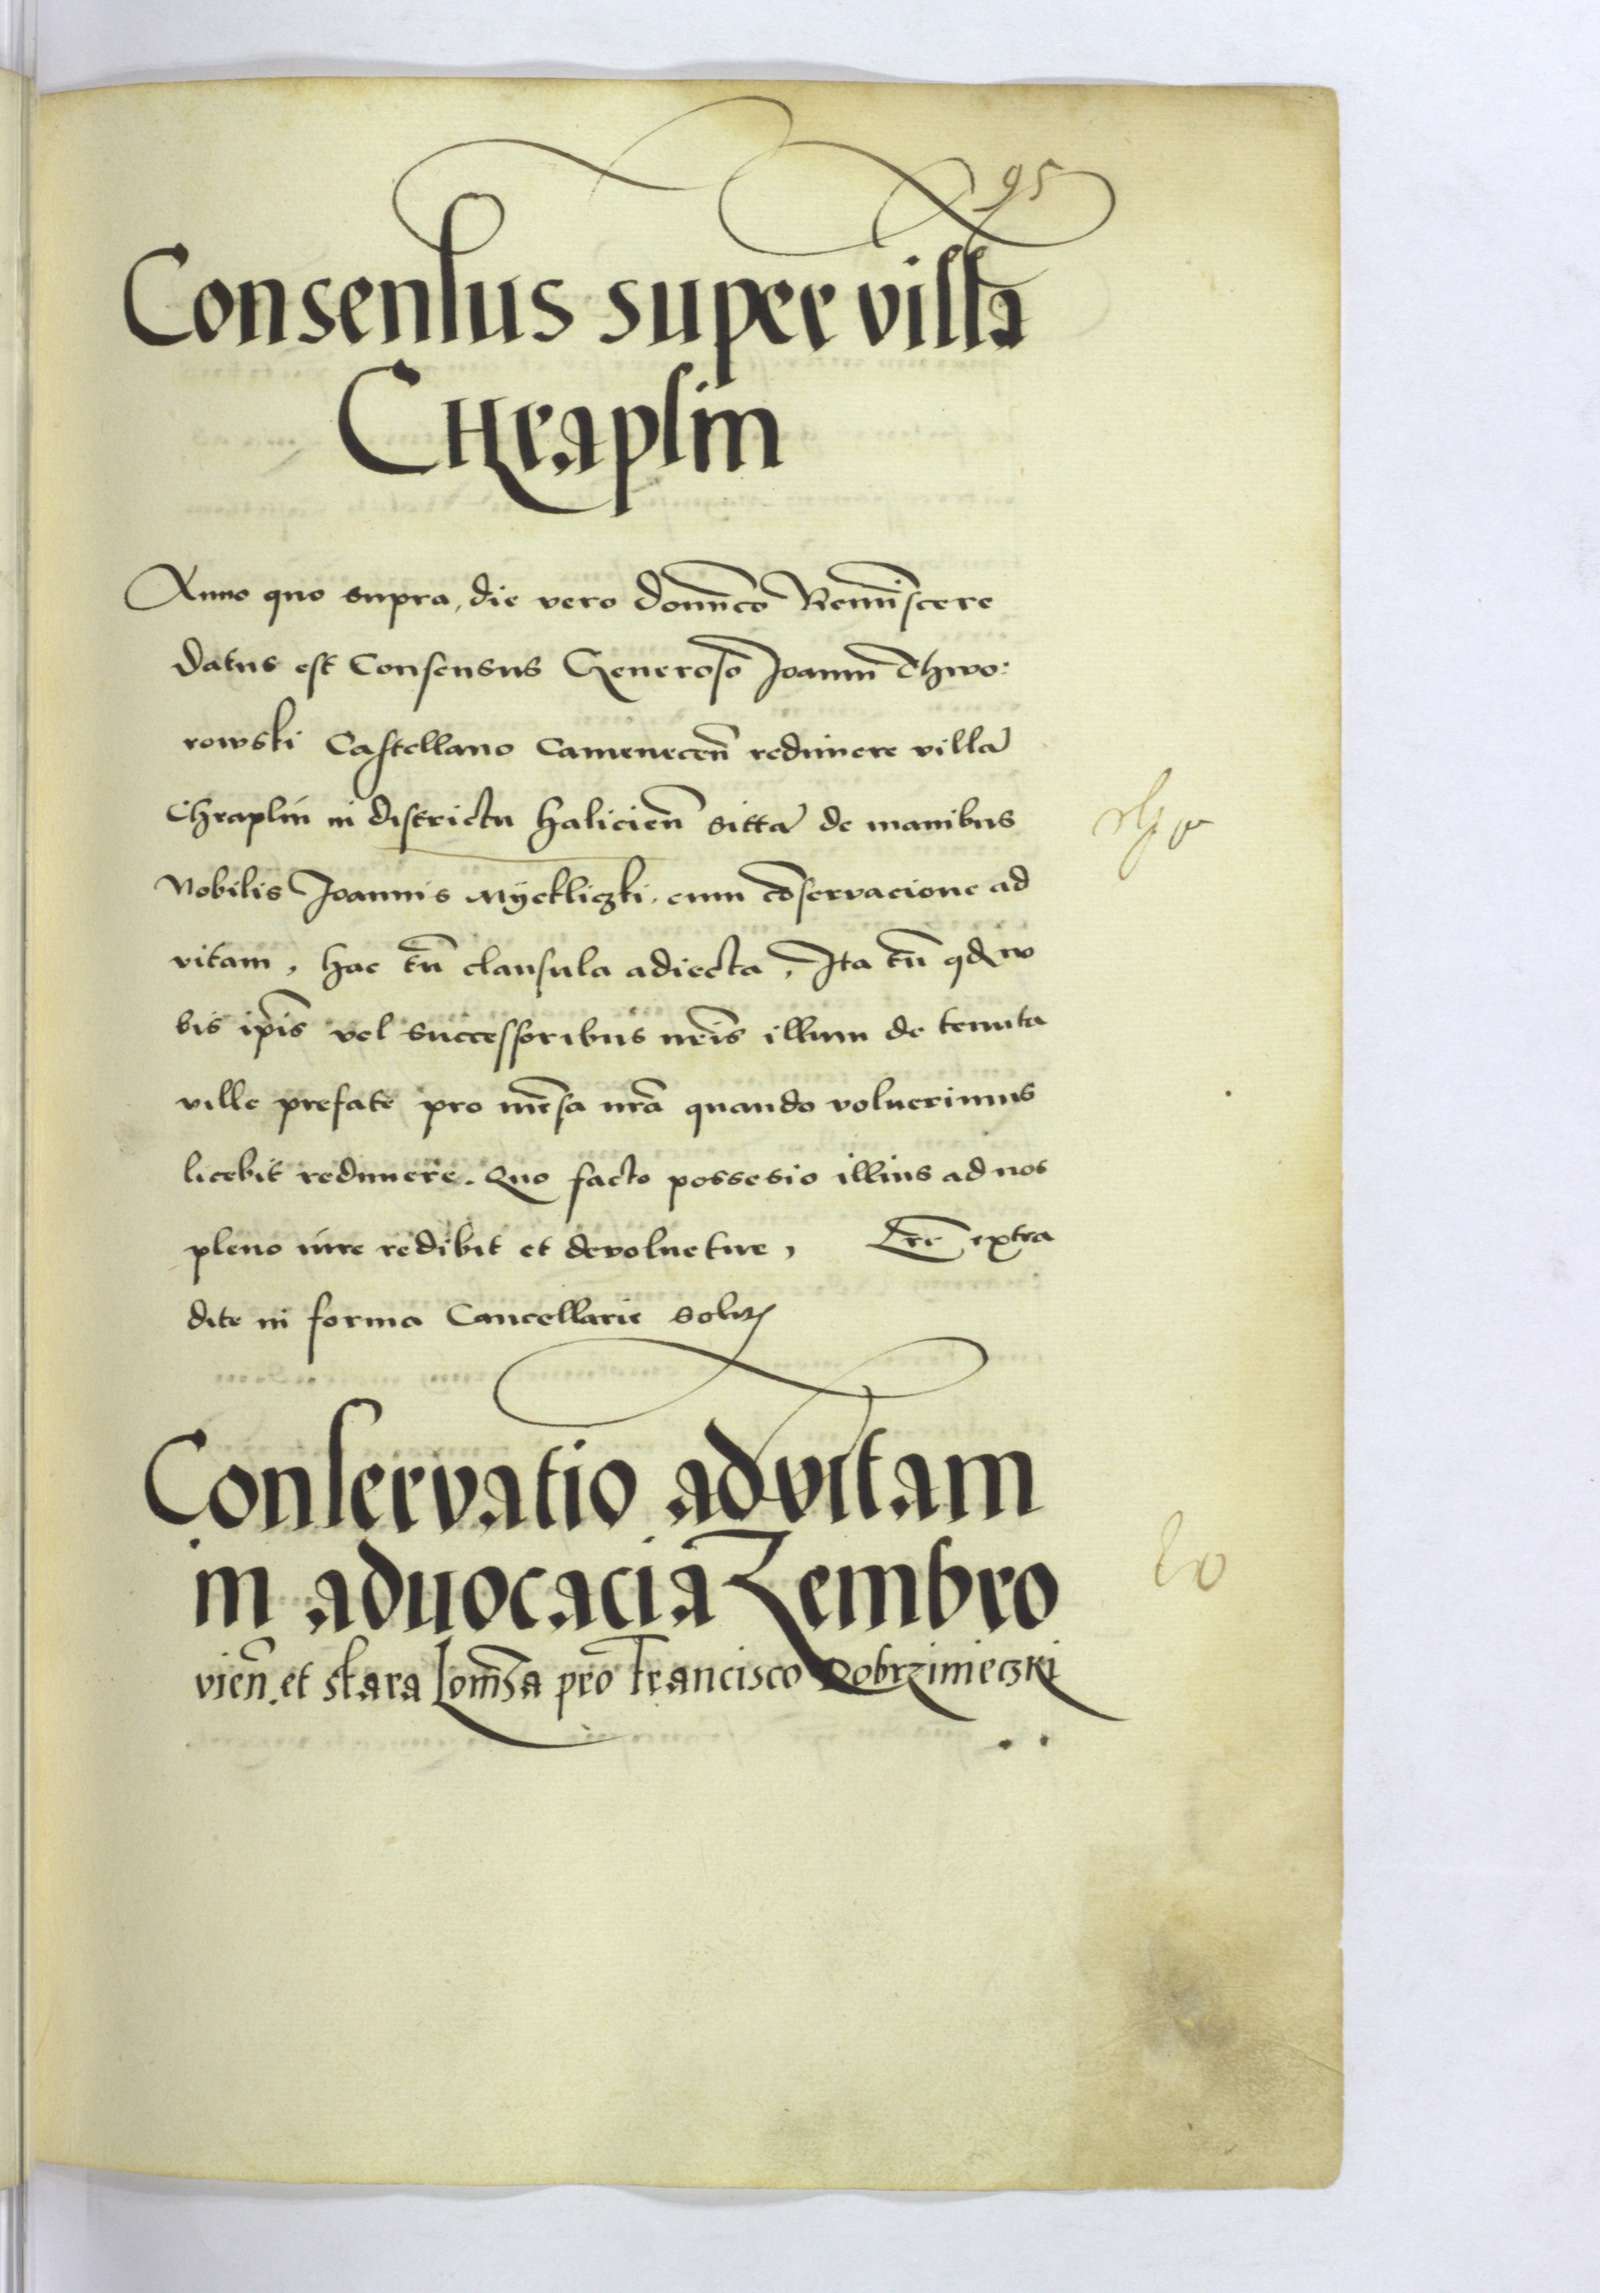 95
Consensus super villa
Chraplin
Anno quo supra, die vero domīco Remīscere
datus est Consensus Generoso Joanni Thwo:
rowski Castellano Cameneceñ redimere villā
Chraplin in districtu Halicieñ sittā de manibus
Nobilis Joannis Myekliczki. cum cōservacione ad
vitam, hac tn̄ clausula adiecta, Ita tn̄ qd no
bis ip̄is vel successoribus nr̄is illum de tenuta
ville prefate pro mēsa nr̄a quando voluerimus
licebit redimere. Quo facto possesio illius ad nos
pleno iure redibit et devoluetur, Lr̄e extra
dite in forma Cancellarie solita
Conservatio ad vitam
in aduocaciā Zembro
vieñ. et stara Lom̄za pro Francisco Dobrzinieczki